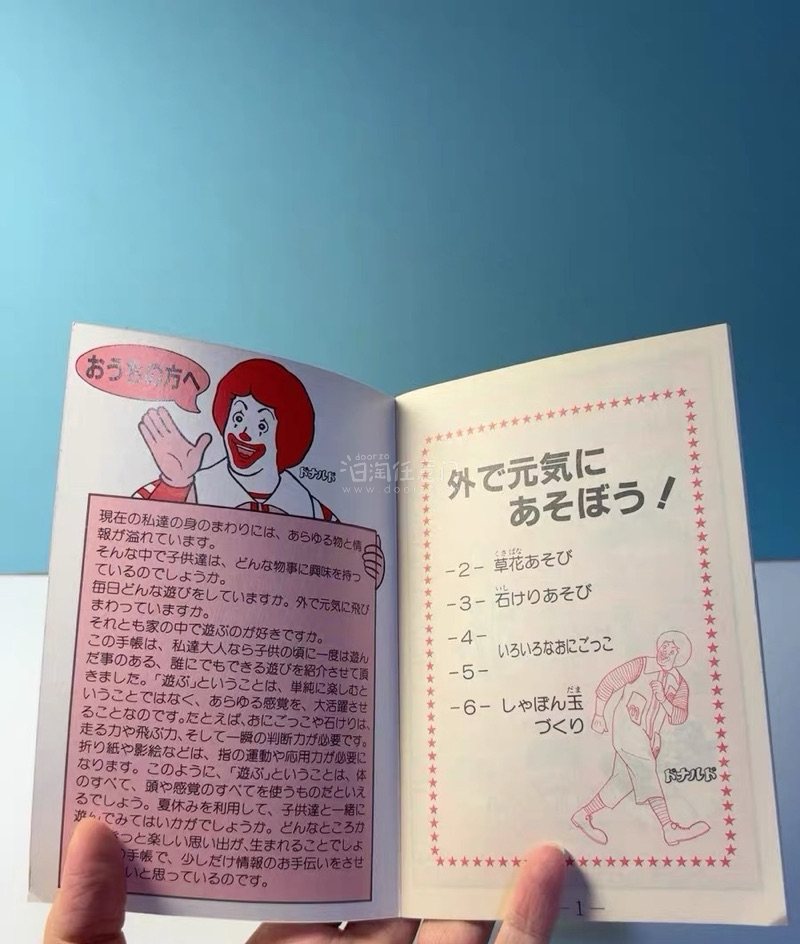 おうちの方へ
ドナルド
現在の私達の身のまわりには、あらゆる物と情
報が溢れています。
そんな中で子供達は、どんな物事に興味を持っ
ているのでしょうか。
毎日どんな遊びをしていますか。外で元気に飛び
まわっていますか。
それとも家の中で遊ぶのが好きですか。
この手帳は、私達大人なら子供の頃に一度は遊ん
だ事のある、誰にでもできる遊びを紹介させて頂
きました。「遊ぶ」ということは、単純に楽しむと
いうことではなく、あらゆる感覚を、大活躍させ
ることなのです。たとえば、おにごっこや石けりは、
走る力や飛ぶ力、そして一瞬の判断力が必要です。
折り紙や影絵などは、指の運動や応用力が必要に
なります。このように、「遊ぶ」ということは、体
のすべて、頭や感覚のすべてを使うものだといえ
るでしょう。夏休みを利用して、子供達と一緒に
遊んでみてはいかがでしょうか。どんなところか
っと楽しい思い出が、生まれることでしょ
の手帳で、少しだけ情報のお手伝いをさせ
いと思っているのです。
外で元気に
あそぼう!
-2- 草花あそび
くさばな
-3- 石けりあそび
いし
-4-
いろいろなおにごっこ
-5-
-6- しゃぼん玉
だま
づくり
ドナルド
-1-
doorzo
www.door